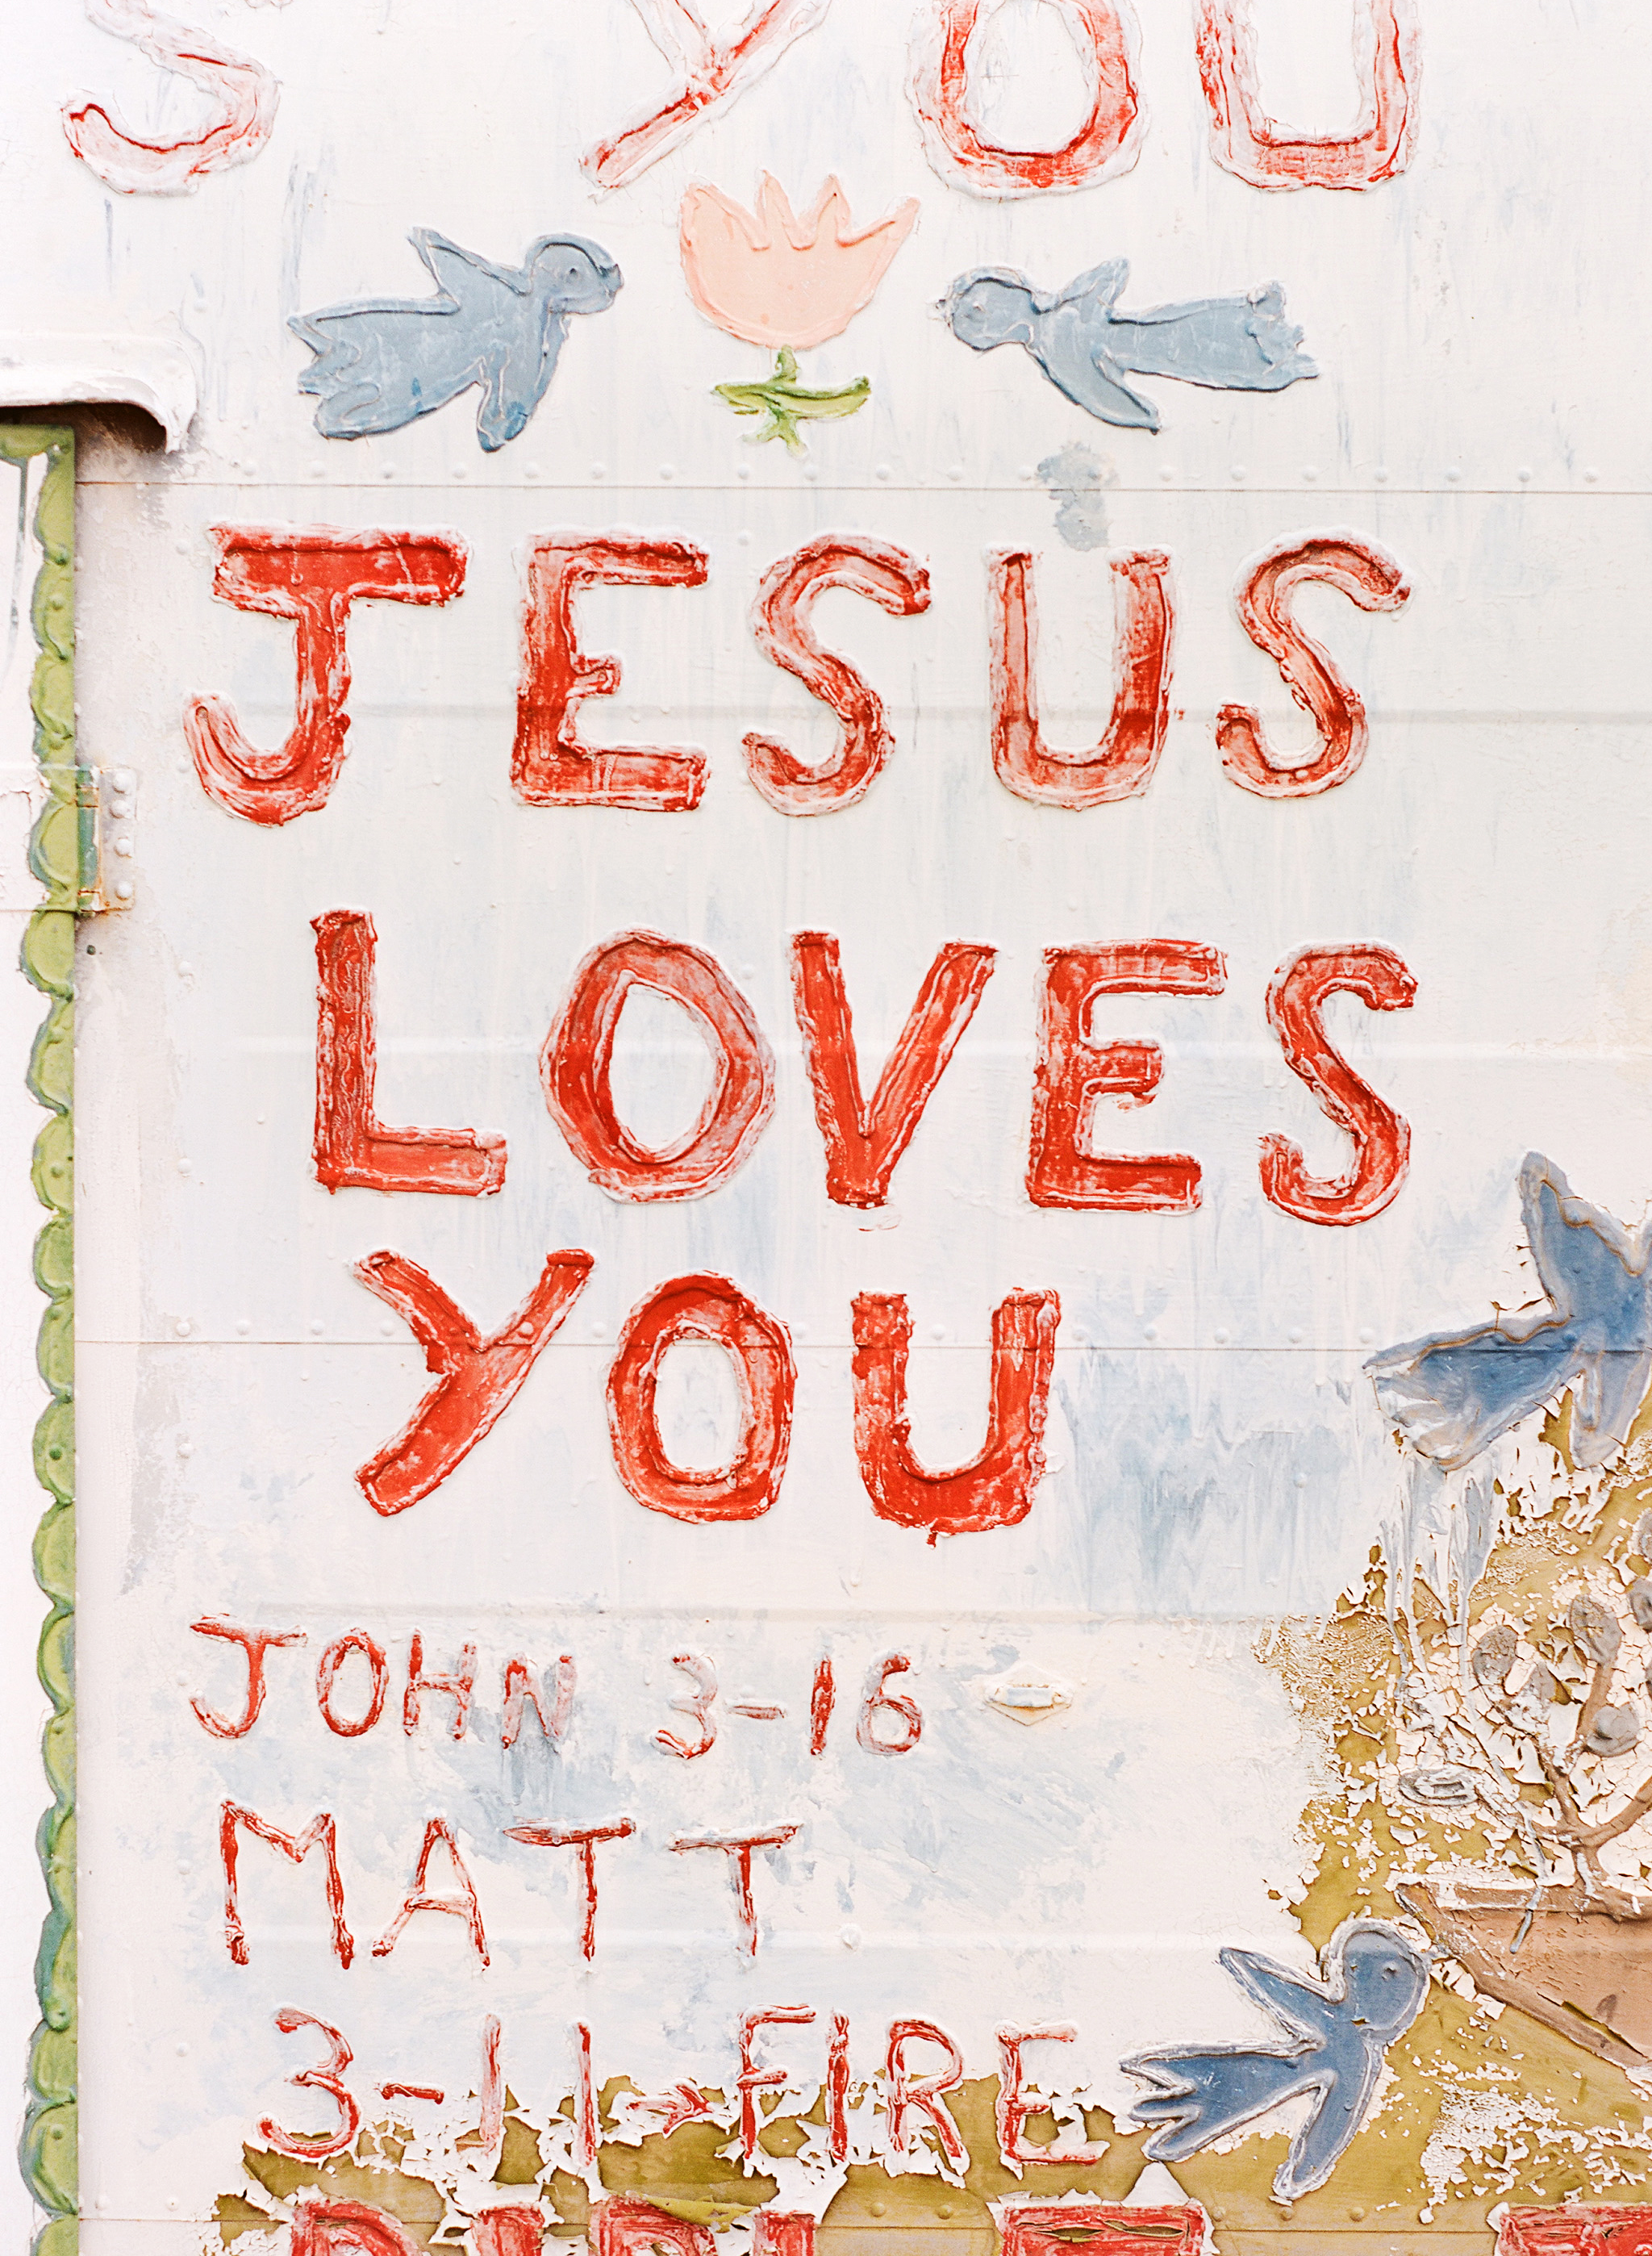 S YOU
JESUS
LOVES
YOU
JOHN 3-16
MATT
3-11-FIRE